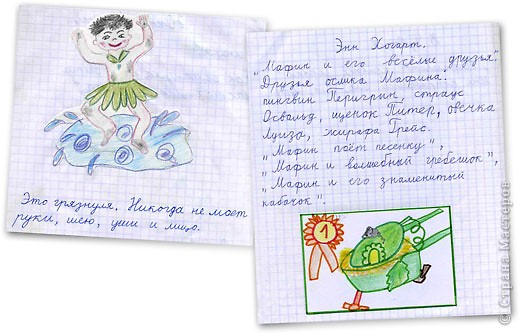 Это грязнуля. Никогда не моет
руки, шею, уши и лицо.
Энн Хогарт.
"Мафин и его весёлые друзья".
Друзья ослика Мафина:
пингвин Перигрин, страус
Освальд, щенок Питер, овечка
Луиза, жирафа Грейс.
"Мафин поёт песенку",
"Мафин и волшебный гребешок",
"Мафин и его знаменитый
кабачок".
1
© Страна Мастеров